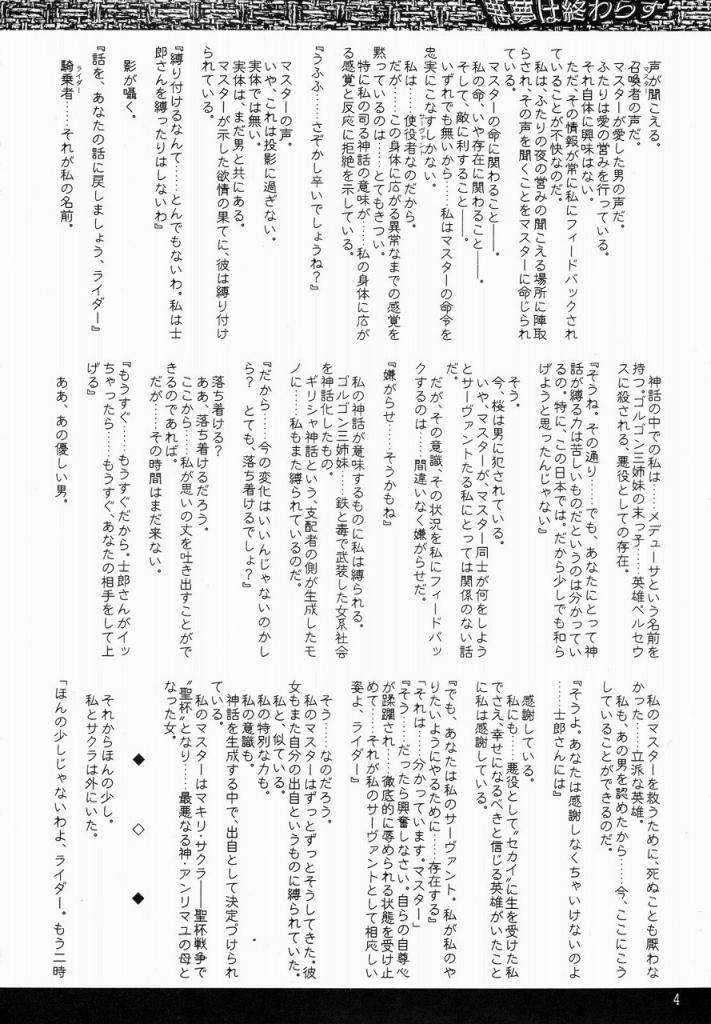 悪夢は終わらず
4
声が聞こえる。
召喚者の声だ。
マスター
マスターが愛した男の声だ。
ふたりは愛の営みを行っている。
それ自体に興味はない。
ただ、その情報が常に私にフィードバックされ
ていることが不快なのだ。
私は、ふたりの夜の営みの聞こえる場所に陣取
らされ、その声を聞くことをマスターに命じられ
ている。
マスターの命に関わること――。
私の命、いや存在に関わること――。
そして、敵に利すること――。
いずれでも無いから……私はマスターの命令を
忠実にこなすしかない。
私は――使役者なのだから。
サーヴァント
だが……この身体に広がる異常なまでの感覚を
黙っているのは……とてもきつい。
特に私の司る神話の意味が……私の身体に広が
る感覚と反応に拒絶を示している。
『うふふ……さぞかし辛いでしょうね？』
マスターの声。
いや、これは投影に過ぎない。
実体では無い。
実体は、まだ男と共にある。
マスターが示した欲情の果てに、彼は縛り付け
られている。
『縛り付けるなんて……とんでもないわ。私は士
郎さんを縛ったりはしないわ』
影が囁く。
『話を、あなたの話に戻しましょう、ライダー』
騎乗者……それが私の名前。
ライダー
神話の中での私は……メデューサという名前を
持つ。ゴルゴン三姉妹の末っ子……英雄ペルセウ
スに殺される、悪役としての存在。
『そうね。その通り……でも、あなたにとって神
話が縛る力は苦しいものだというのは分かってい
るの。特に、この日本では。だから少しでも和ら
げようと思ったんじゃない』
そう。
今、桜は男に犯されている。
いや、マスターが、マスター同士が何をしよう
とサーヴァントたる私にとっては関係のない話
だ。
だが、その意識、その状況を私にフィードバッ
クするのは……間違いなく嫌がらせだ。
『嫌がらせ……そうかもね』
私の神話が意味するものに私は縛られる。
ゴルゴン三姉妹……鉄と毒で武装した女系社会
を神話化したもの。
ギリシャ神話という、支配者の側が生成したモ
ノに……私もまた縛られているのだ。
『だから……今の変化はいいんじゃないのかし
ら？　とても、落ち着けるでしょ？』
落ち着ける？
ああ、落ち着けるだろう。
ここから……私が思いの丈を吐き出すことがで
きるのであれば。
だが……その時間はまだ来ない。
『もうすぐ……もうすぐだから。士郎さんがイッ
ちゃったら……もうすぐ、あなたの相手をして上
げる』
ああ、あの優しい男。
私のマスターを救うために、死ぬことも厭わな
かった……立派な英雄。
私も、あの男を認めたから……今、ここにこう
していることができるのだ。
『そうよ。あなたは感謝しなくちゃいけないのよ
……士郎さんには』
感謝している。
私にも……悪役として〝セカイ〟に生を受けた私
でさえ、幸せになるべきと信じる英雄がいたこと
に私は感謝している。
『でも、あなたは私のサーヴァント。私が私のや
りたいようにやるために……存在する』
「それは……分かっています。マスター」
『そう……だったら興奮しなさい。自らの自尊心
が蹂躙され……徹底的に辱められる状態を受け止
めて……それが私のサーヴァントとして相応しい
姿よ、ライダー』
そう……なのだろう。
私のマスターはずっとずっとそうしてきた。彼
女もまた自分の出自というものに縛られていた。
私と、似ている。
私の特別な力も。
私の意識も。
神話を生成する中で、出自として決定づけられ
ている。
私のマスターはマキリ・サクラ――聖杯戦争で
〝聖杯〟となり……最悪なる神・アンリマユの母と
なった女。
◆　◇　◆
それからほんの少し。
私とサクラは外にいた。
「ほんの少しじゃないわよ、ライダー。もう二時